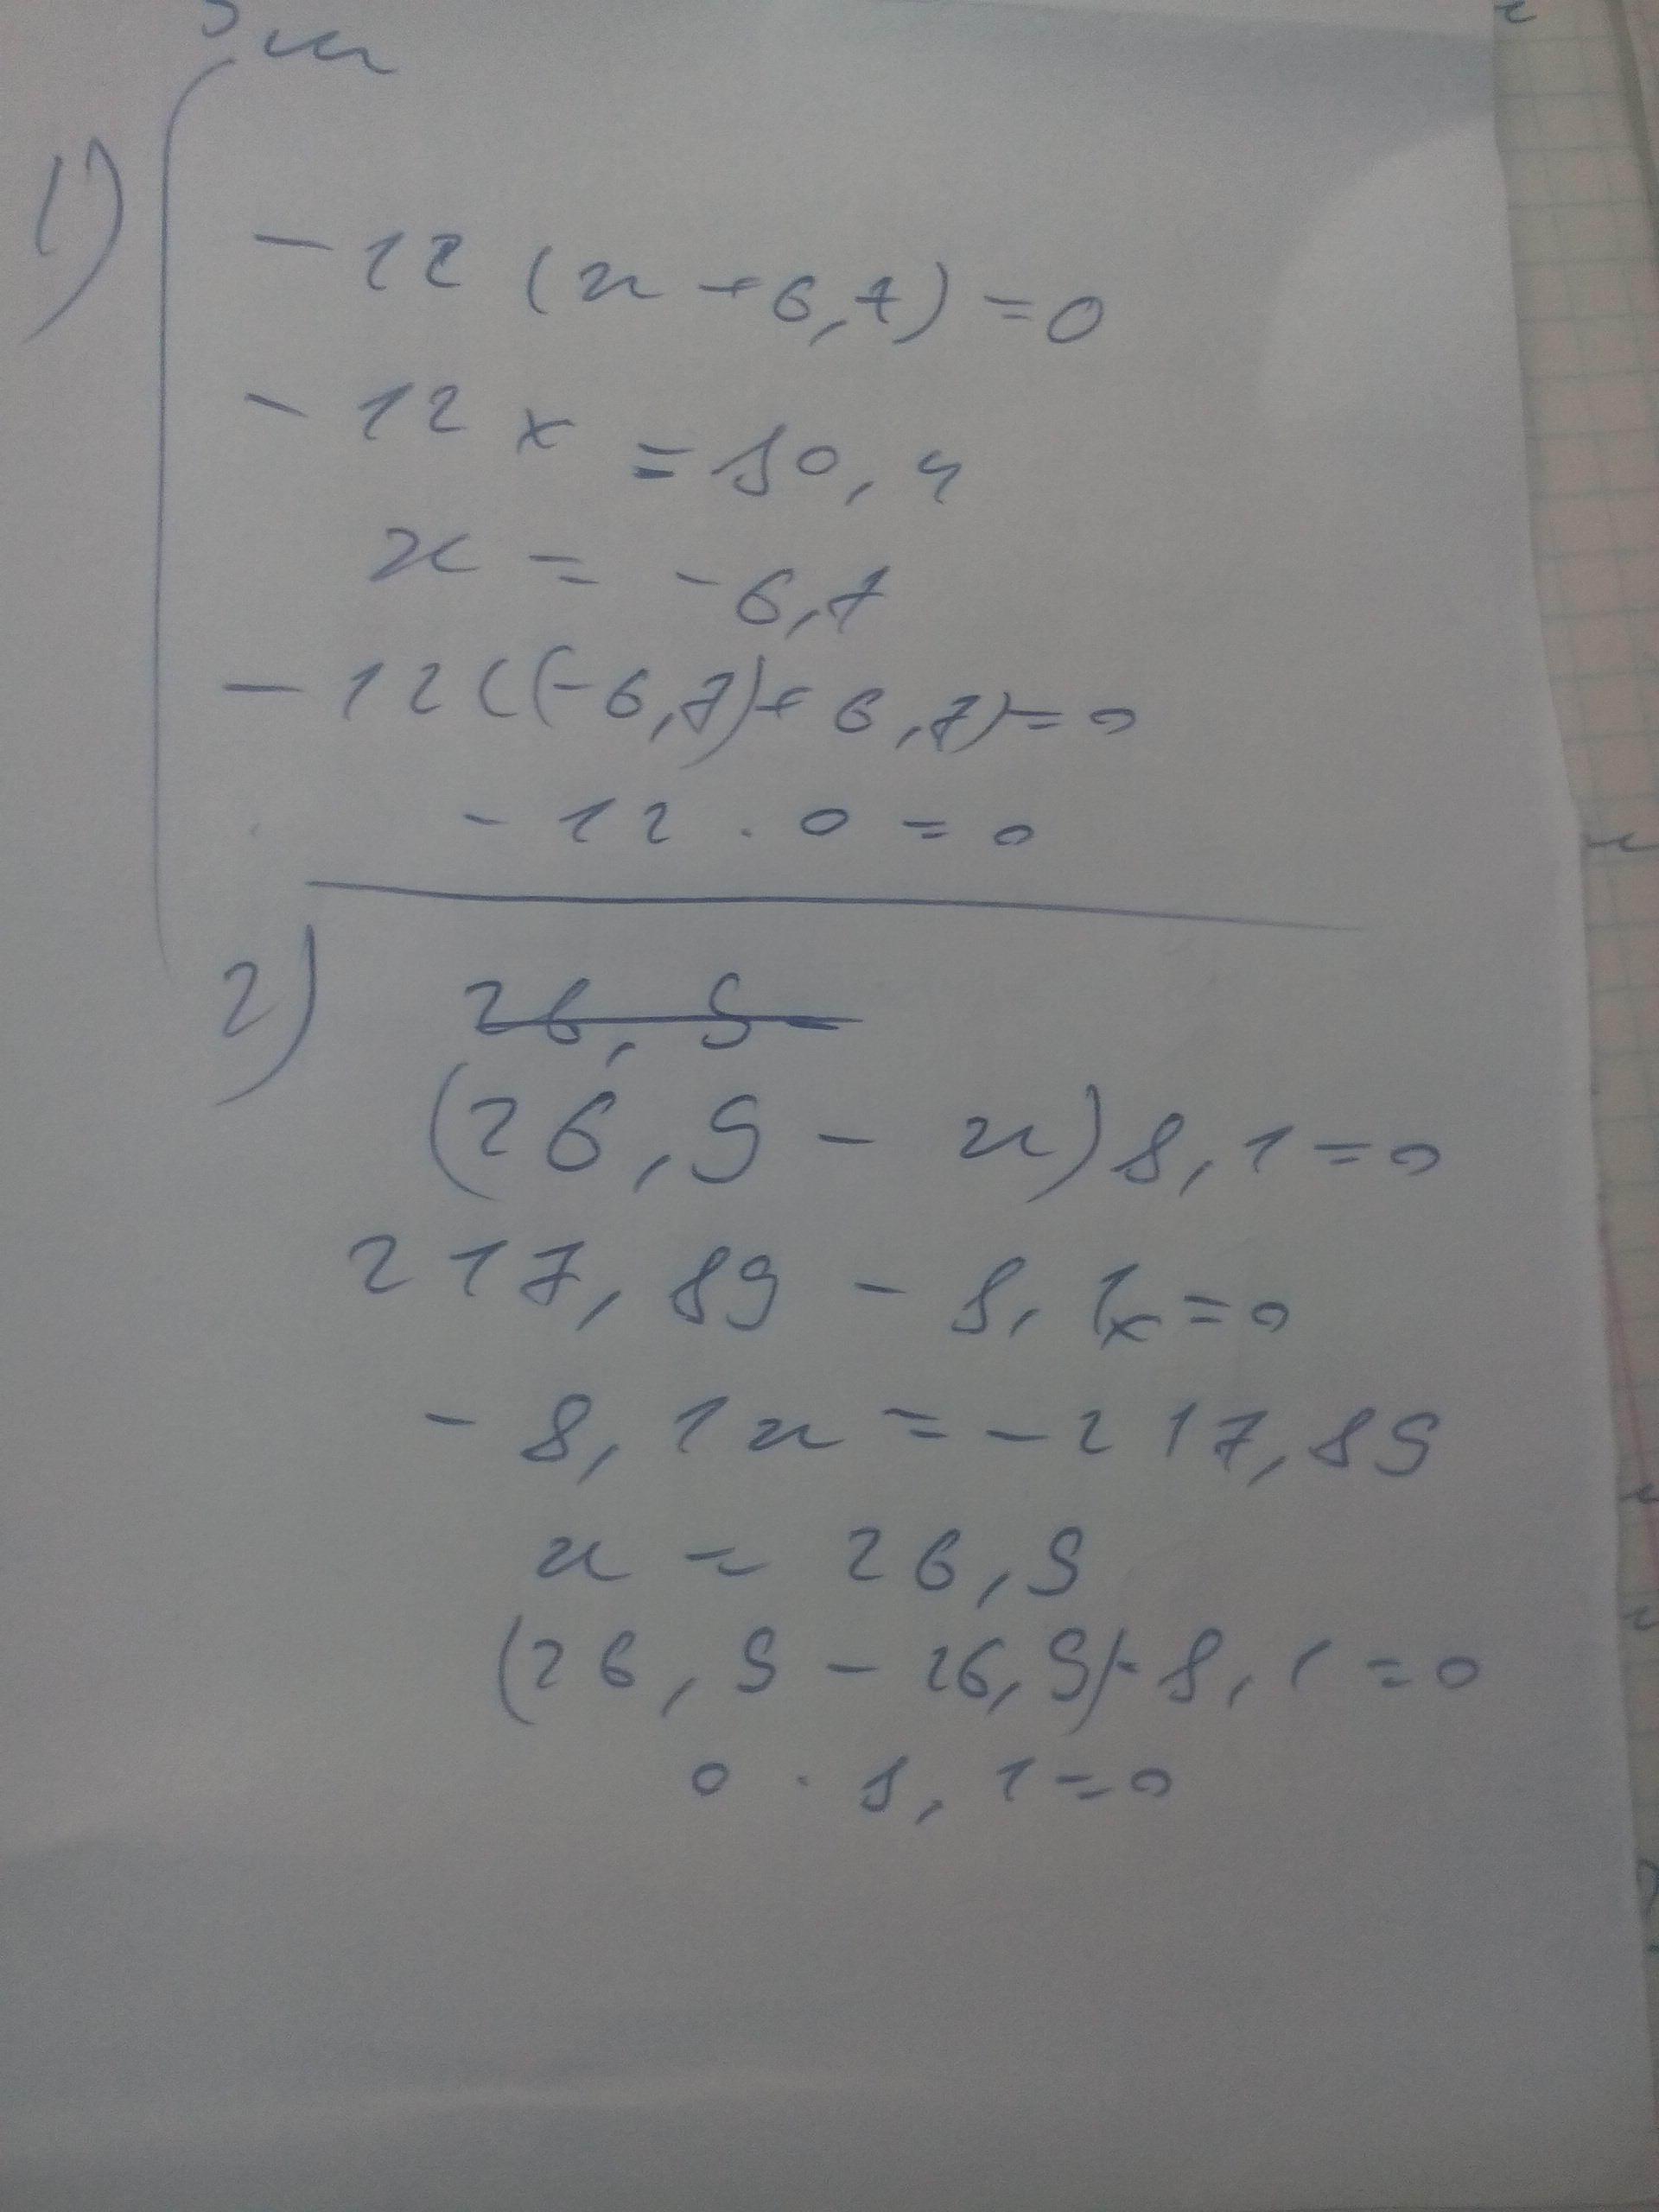 1)
-12 (x + 6,7) = 0
-12x = 80,4
x = -6,7
-12((-6,7)+6,7)=0
-12 · 0 = 0
2)
26,9 -
(26,9 - x)8,1=0
217,89 - 8,1x=0
-8,1x = -217,89
x = 26,9
(26,9 - 26,9)·8,1=0
0 · 8,1=0